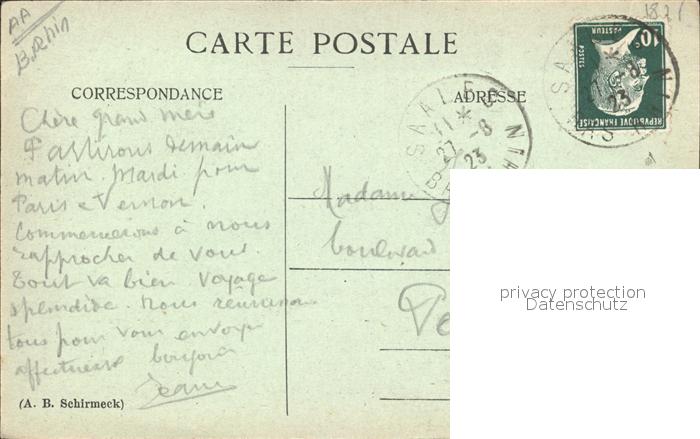 AA
B. Rhin
CARTE POSTALE
CORRESPONDANCE
ADRESSE
Chère grand mère
Partirons demain
matin Mardi pour
Paris et Vernon.
Commencerons à nous
rapprocher de vous.
Tout va bien. Voyage
splendide. Nous réunissons
tous pour vous envoyer
affectueux bonjour
(A. B. Schirmeck)
SAALES
11 *
27 -8
23
BAS RHIN
POSTES
PASTEUR
10
REPUBLIQUE FRANÇAISE
SAALES
27 -8
23
BAS RHIN
Madame
boulevard
privacy protection
Datenschutz